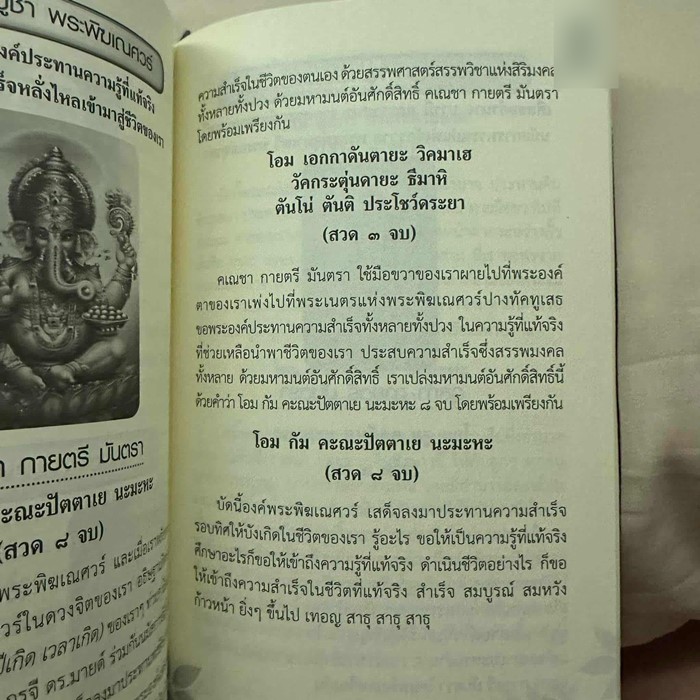 บูชา พระพิฆเณศวร์
องค์ประทานความรู้ที่แท้จริง
ร็จหลั่งไหลเข้ามาสู่ชีวิตของเรา
กายตรี มันตรา
คะณะปัตตาเย นะมะหะ
(สวด ๘ จบ)
พระพิฆเณศวร์ และเมื่อเรา
วร์ในดวงจิตของเรา
ปีเกิด เวลาเกิด) ของเราๆ
กูรูจี ดร.มายด์ ร่วมกัน
ความสำเร็จในชีวิตของตนเอง ด้วยสรรพศาสตร์สรรพวิชาแห่งสิริมงคล
ทั้งหลายทั้งปวง ด้วยมหามนต์อันศักดิ์สิทธิ์ คเณชา กายตรี มันตรา
โดยพร้อมเพรียงกัน
โอม เอกกาดันตายะ วิคมาเฮ
วัคกระตุ่นดายะ ธีมาหิ
ตันโน่ ตันติ ประโชว์ดระยา
(สวด ๓ จบ)
คเณชา กายตรี มันตรา ใช้มือขวาของเราผายไปที่พระองค์
ตาของเราเพ่งไปที่พระเนตรแห่งพระพิฆเณศวร์ปางทัคทูเสธ
ขอพระองค์ประทานความสำเร็จทั้งหลายทั้งปวง ในความรู้ที่แท้จริง
ที่ช่วยเหลือนำพาชีวิตของเรา ประสบความสำเร็จซึ่งสรรพมงคล
ทั้งหลาย ด้วยมหามนต์อันศักดิ์สิทธิ์ เราเปล่งมหามนต์อันศักดิ์สิทธิ์นี้
ด้วยคำว่า โอม กัม คะณะปัตตาเย นะมะหะ ๘ จบ โดยพร้อมเพรียงกัน
โอม กัม คะณะปัตตาเย นะมะหะ
(สวด ๘ จบ)
บัดนี้องค์พระพิฆเณศวร์ เสด็จลงมาประทานความสำเร็จ
รอบทิศให้บังเกิดในชีวิตของเรา รู้อะไร ขอให้เป็นความรู้ที่แท้จริง
ศึกษาอะไรก็ขอให้เข้าถึงความรู้ที่แท้จริง ดำเนินชีวิตอย่างไร ก็ขอ
ให้เข้าถึงความสำเร็จในชีวิตที่แท้จริง สำเร็จ สมบูรณ์ สมหวัง
ก้าวหน้า ยิ่งๆ ขึ้นไป เทอญ สาธุ สาธุ สาธุ